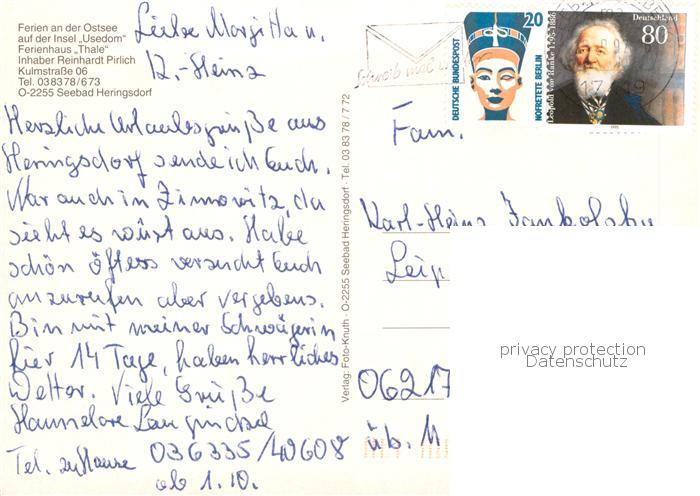 Ferien an der Ostsee
auf der Insel „Usedom"
Ferienhaus „Thale"
Inhaber Reinhardt Pirlich
Kulmstraße 06
Tel. 038378/673
O-2255 Seebad Heringsdorf
Liebe Margitta u.
K.-Heinz
Herzliche Urlaubsgrüße aus
Heringsdorf sende ich Euch.
War auch in Zinnowitz, da
sieht es wüst aus. Habe
schön öfters versucht Euch
anzurufen aber vergebens.
Bin mit meiner Schwägerin
hier 14 Tage, haben herrliches
Wetter. Viele Grüße
Hannelore
Tel. zuhause 036335/40608
ab 1.10.
Verlag: Foto-Knuth · O-2255 Seebad Heringsdorf · Tel. 03 83 78 / 7 72
Schreib mal
DEUTSCHE BUNDESPOST
20
NOFRETETE BERLIN
Leopold von Ranke 1795-1886
Deutschland
80
Fam.
Karl-Heinz
Leip
06217
üb. M
privacy protection
Datenschutz